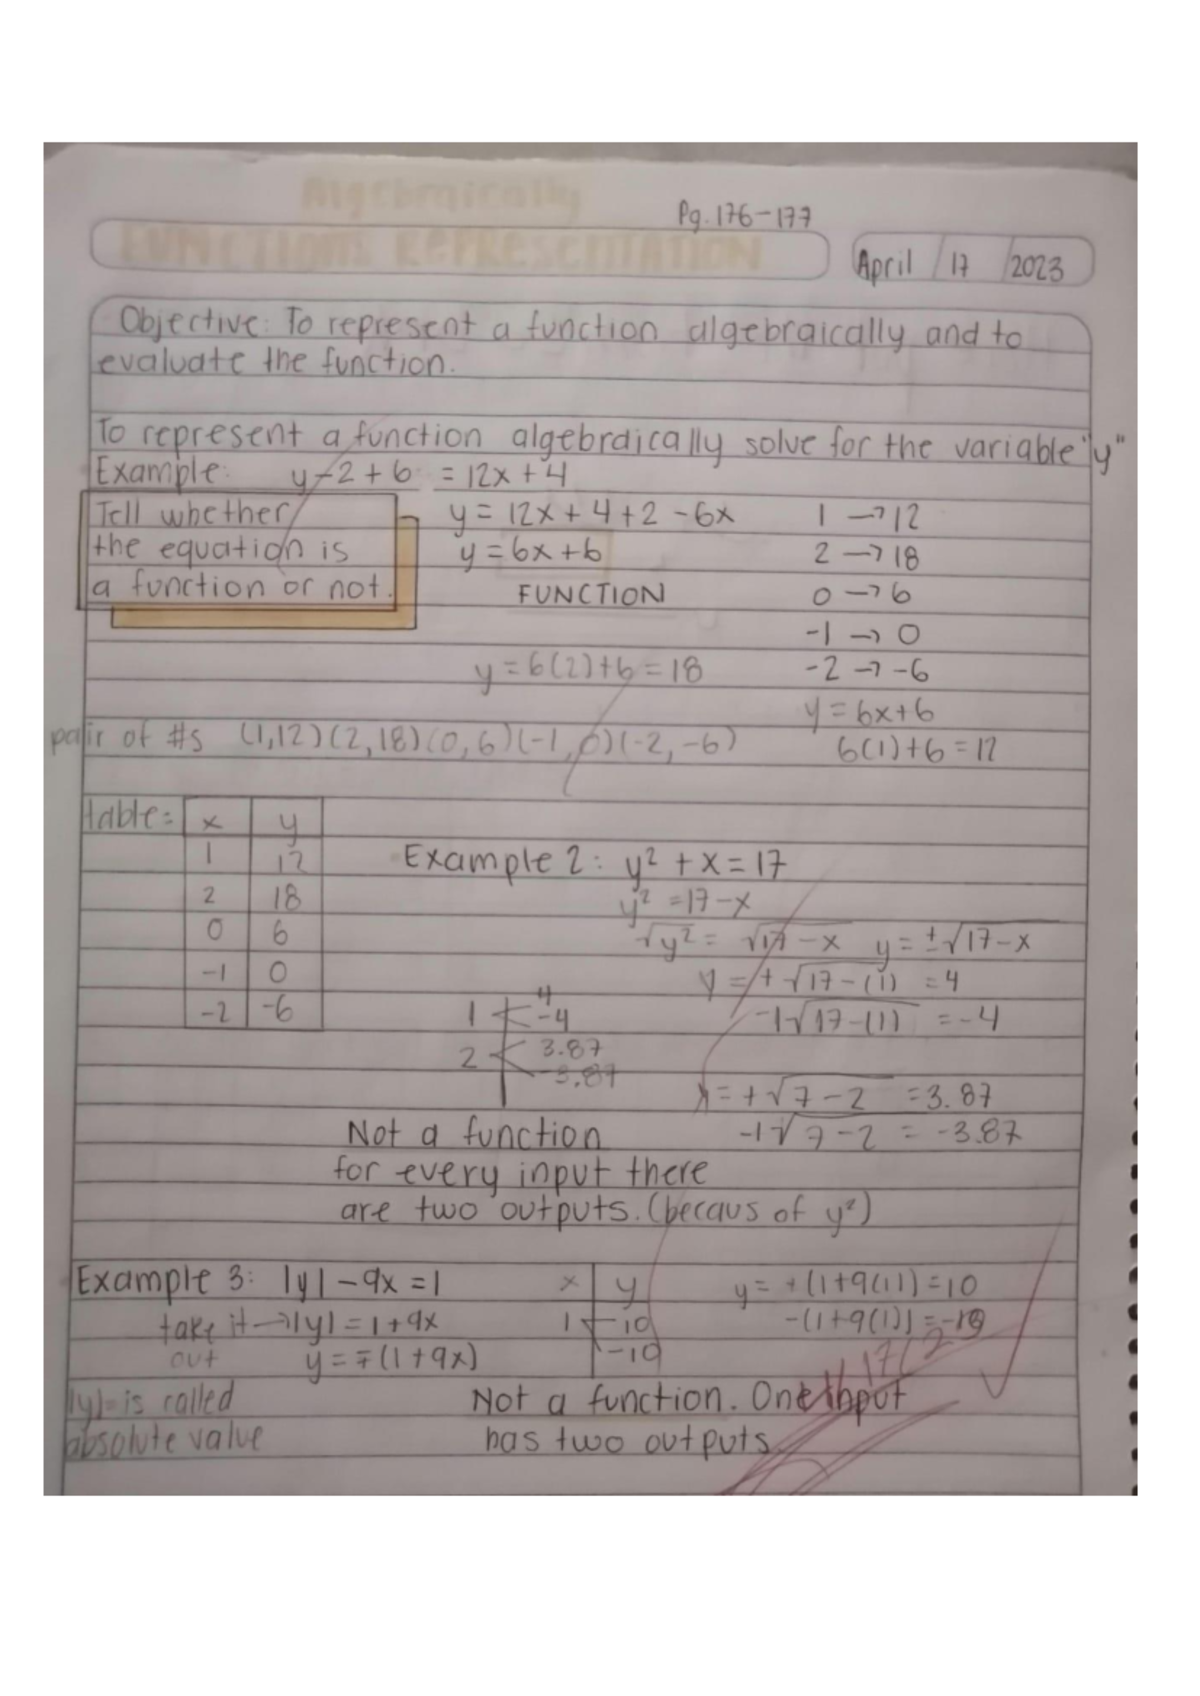 Algebraically
Pg. 176-177
FUNCTIONS REPRESENTATION
April 17 2023
Objective: To represent a function algebraically and to
evaluate the function.
To represent a function algebraically solve for the variable "y"
Example: y-2+6 = 12x+4
Tell whether
the equation is
a function or not.
y = 12x+4+2-6x
y = 6x+6
FUNCTION
1 → 12
2 → 18
0 → 6
-1 → 0
-2 → -6
y = 6(2)+6 = 18
y = 6x+6
6(1)+6 = 12
pair of #s (1,12)(2,18)(0,6)(-1,0)(-2,-6)
table:
x y
1 12
2 18
0 6
-1 0
-2 -6
Example 2: y² + x = 17
y² = 17-x
√y² = √17-x y = ±√17-x
y = +√17-(1) = 4
-1√17-(1) = -4
1 4
-4
2 3.87
-3.87
y = +√7-2 = 3.87
-1√7-2 = -3.87
Not a function
for every input there
are two outputs. (becaus of y²)
Example 3: |y| - 9x = 1
take it → |y| = 1+9x
out y = ∓(1+9x)
|y|= is called
absolute value
x y
1 10
-10
y = +(1+9(1)) = 10
-(1+9(1)) = -10
Not a function. One input
has two outputs.